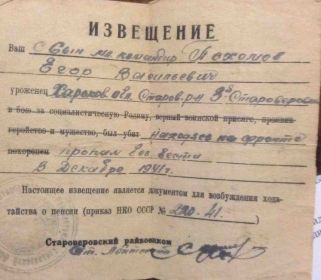 ИЗВЕЩЕНИЕ
Ваш Сын мл командир Пахомов
Егор Васильевич
уроженец Харьков обл. Старов. р-н 3-Староверовка
в бою за социалистическую Родину, верный воинской присяге, проявив
геройство и мужество, был убит находясь на фронте
похоронен пропал без вести
в Декабре 1941 г.
Настоящее извещение является документом для возбуждения хода-
тайства о пенсии (приказ НКО СССР № 220-41.
Староверовский райвоенком